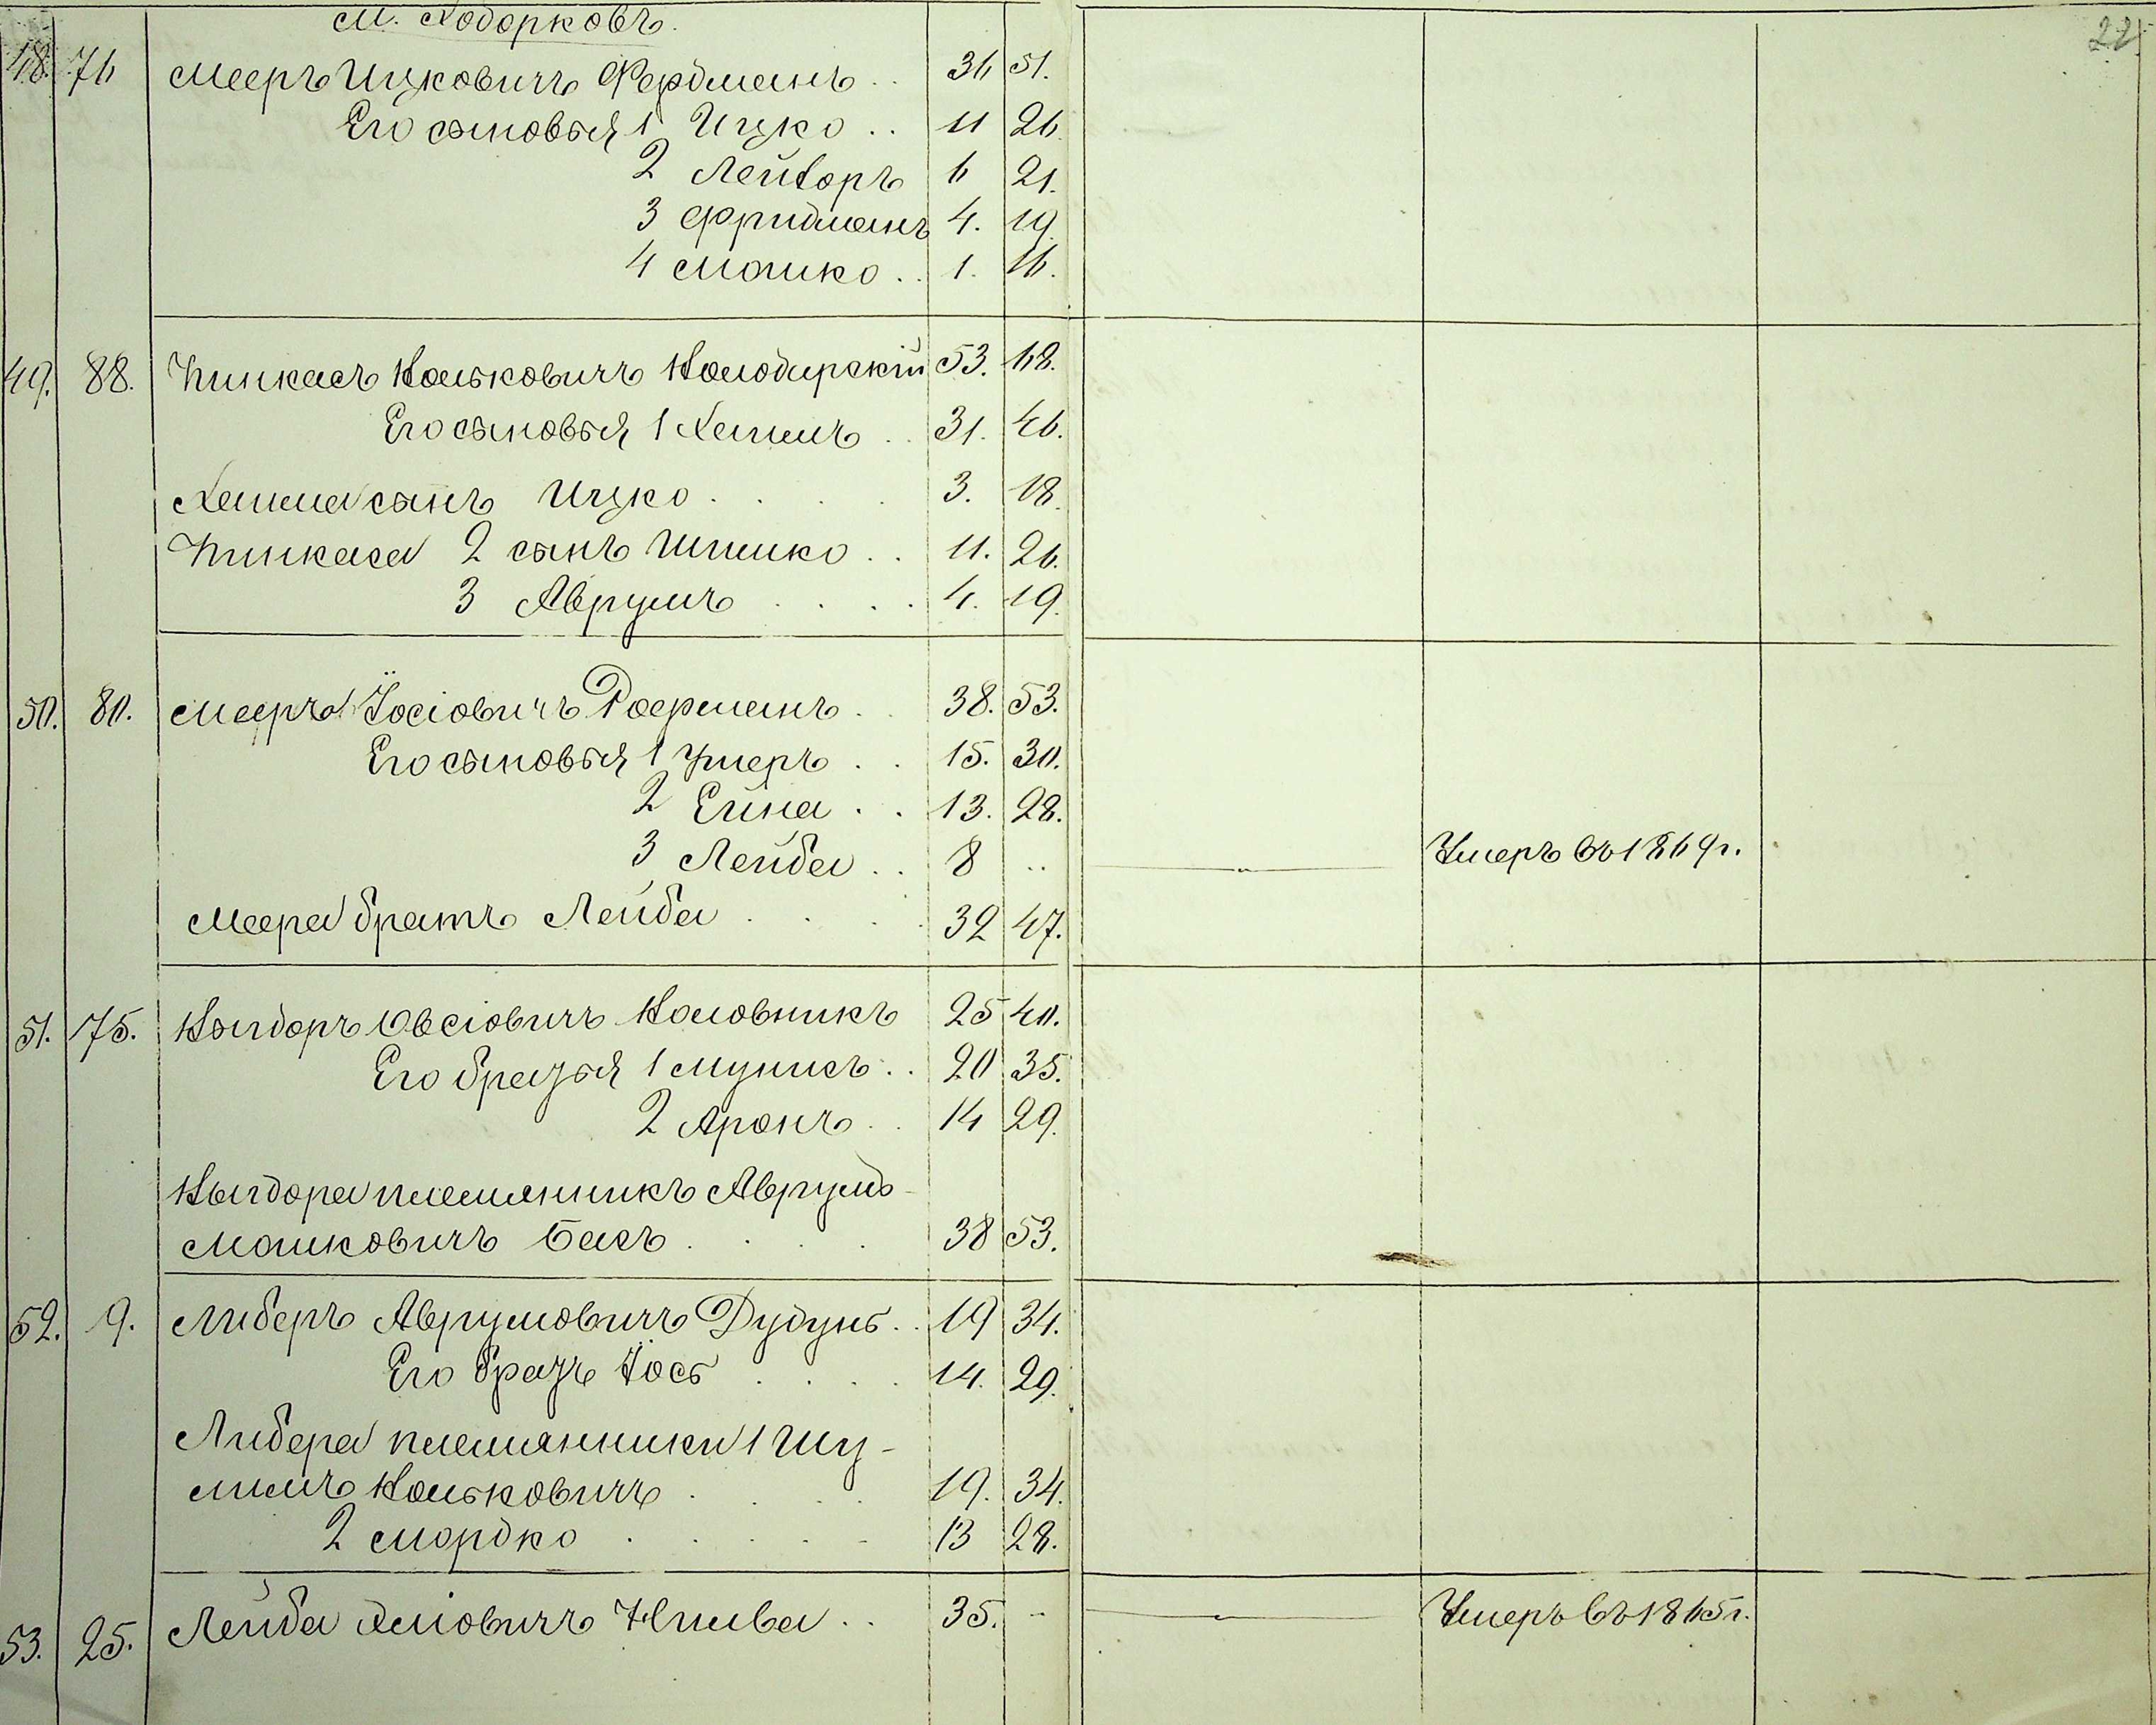 м. Ходорковъ.
22
48. 76 Мееръ Ицковичъ Фердманъ .. 36 51.
Его сыновья 1 Ицко .. 11 26.
2 Лейзоръ 6 21.
3 Фридманъ 4. 19.
4 Мошко .. 1. 16.
49. 88. Пинкасъ Ноиковичъ 53. 68.
Его сыновья 1 Хаимъ .. 31. 46.
Хаима сынъ Ицко .... 3. 18.
Пинкаса 2 сынъ Шимко .. 11. 26.
3 Аврумъ .... 4. 19.
50. 80. Мееръ Іосіовичъ Ройхманъ .. 38. 53.
Его сыновья 1 Ушеръ .. 15. 30.
2 Ейна .. 13. 28.
3 Лейба .. 8 .. Умеръ въ 1869 г.
Меера братъ Лейба .... 32 47.
51. 75. Овсіовичъ Коловникъ 25 40.
Его братья 1 Мунисъ .. 20 35.
2 Аронъ .. 14 29.
племянникъ Аврумъ
Мошковичъ Басъ .... 38 53.
52. 9. Либеръ Аврумовичъ .. 19 34.
Его братъ Іось .... 14. 29.
Либера племянники 1 Шу-
лимъ .... 19. 34.
2 Мордко ..... 13 28.
53. 25. Лейба .. 35. - Умеръ въ 1865 г.